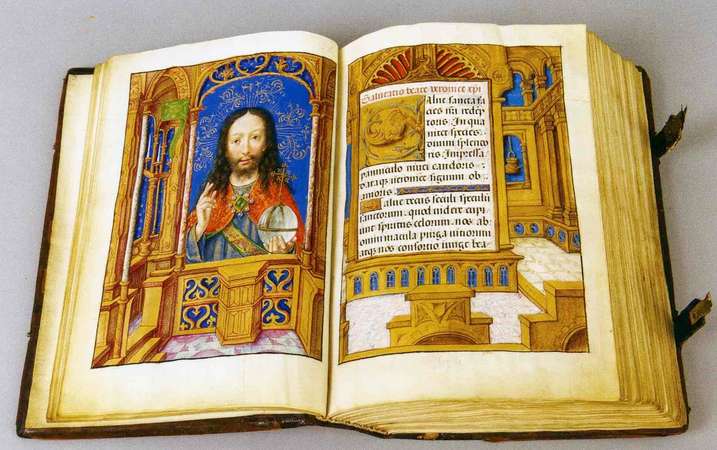 Salutatio beate veronice xpi
Salue sancta fa
cies nr̄i redēp
toris In qua
nitet species
diuini splendo
ris Impressa
panniculo niuei candoris
dataq̄ veronice signum ob
amoris
Salue decus seculi speculū
sanctorum. quod videre cupi
unt spiritus celorum. nos ab
omni macula purga viciorum
atq̄ nos consortio iunge bea